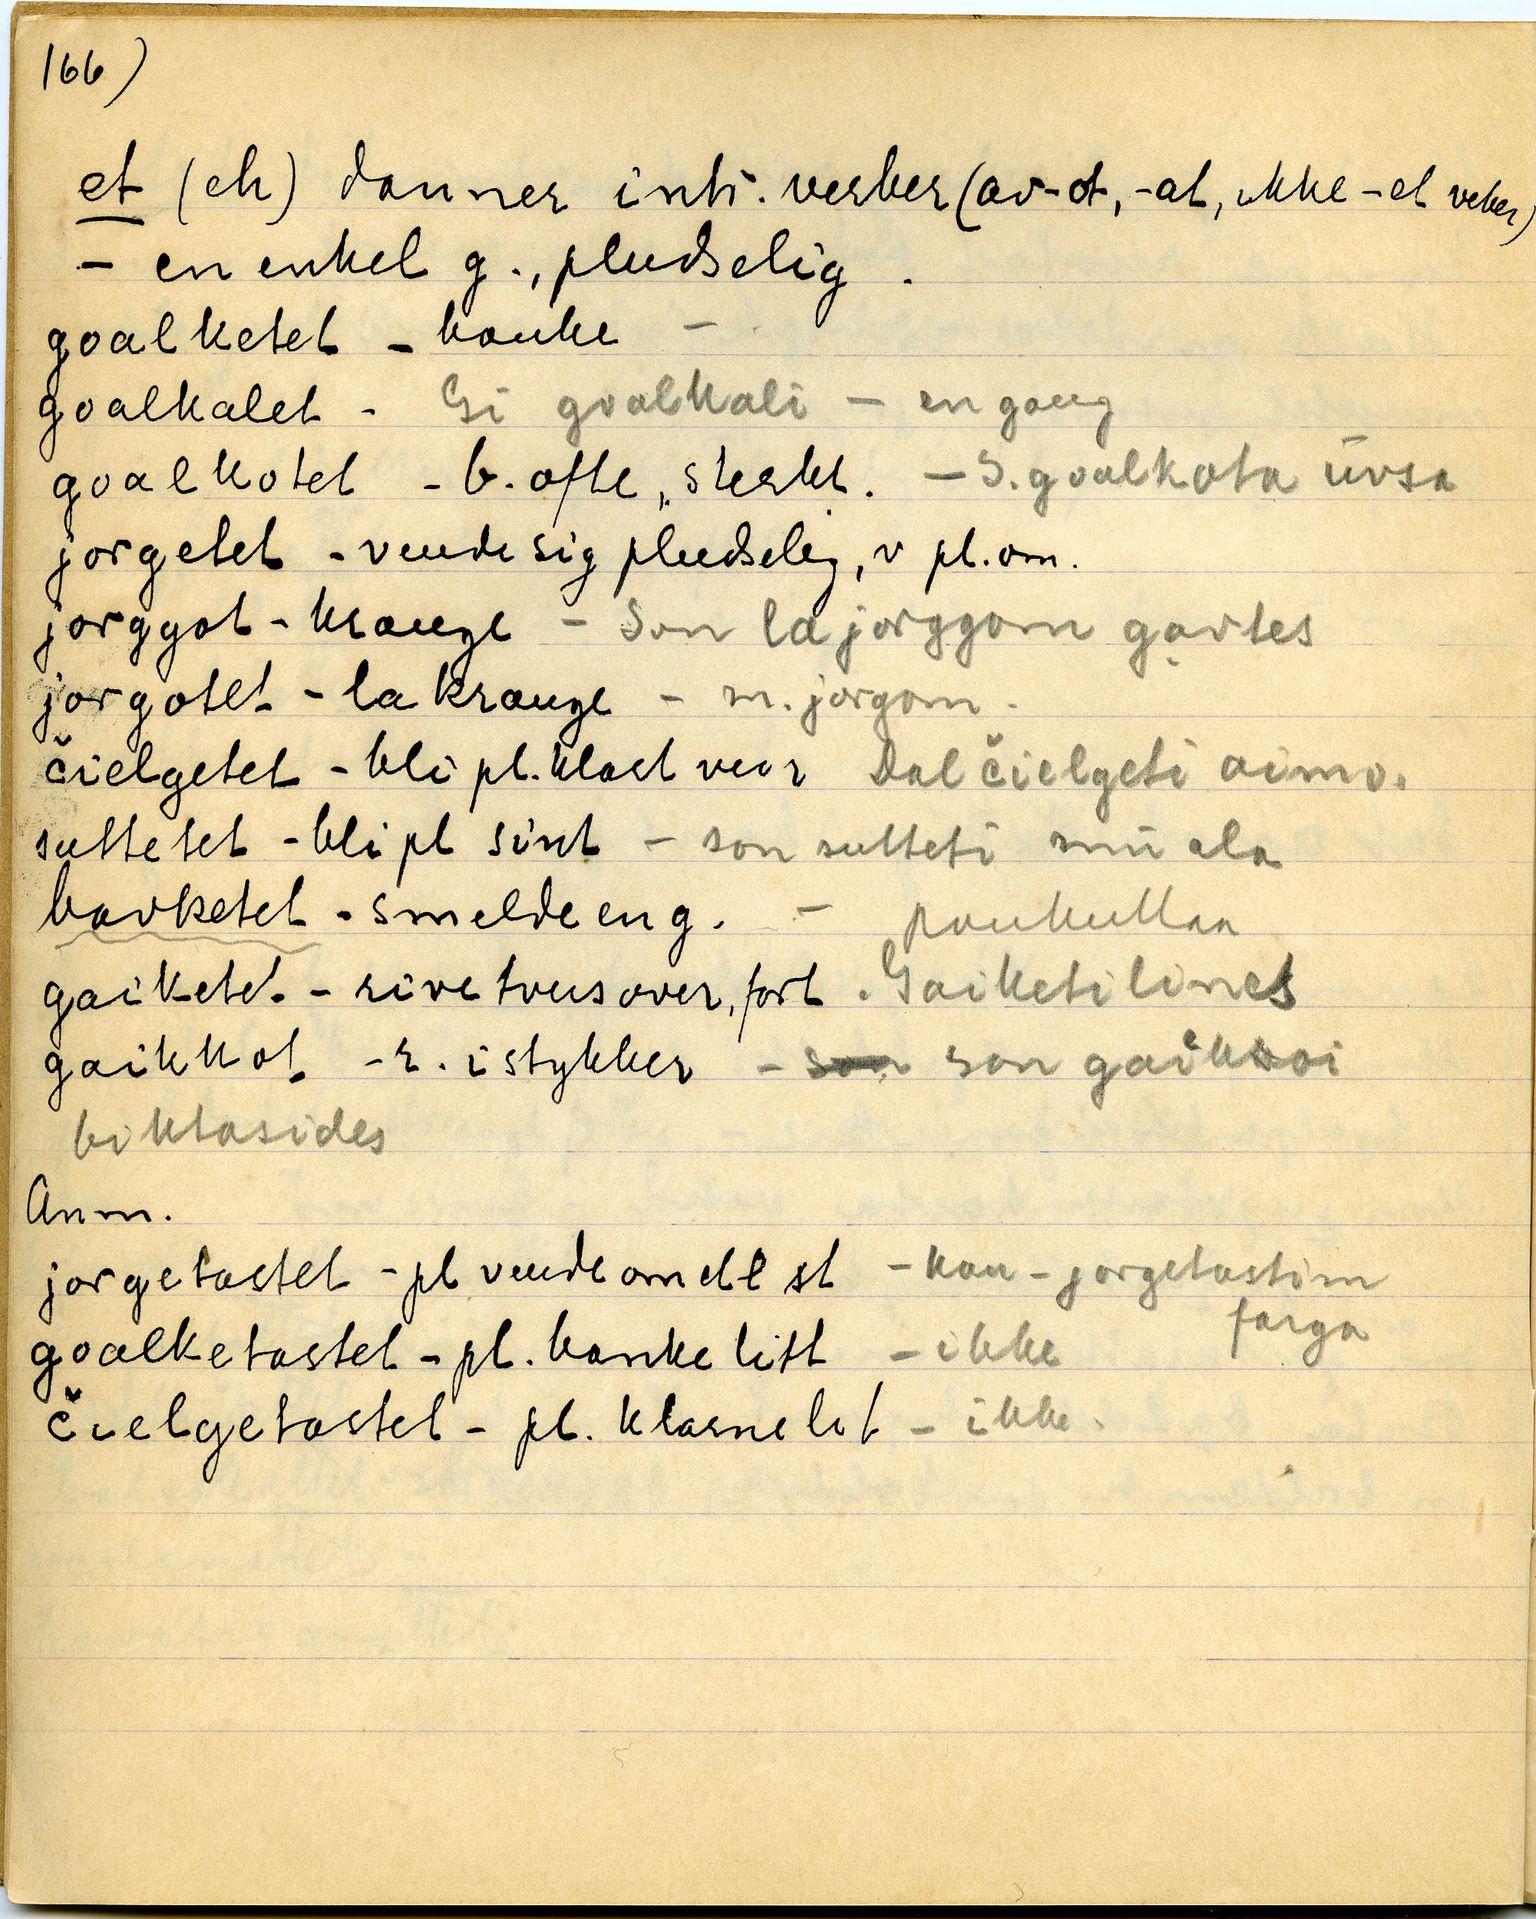 166)
et (eh) danner intr. verber (av -ot, -at, ikke -et verber)
- en enkel g., pludselig.
goalketet - banke -
goalkalet - Gi goalkali - en gang
goalkotet - b. ofte, sterkt. - S. goalkota üvsa
jorgetet - vende sig pludselig, v pl. om.
jorggot - krange - Son la jorggom gavtes
jorgotet - la krange - m. jorgom.
čielgetet - bli pl. klart veir Dal čielgeti aimo.
suttetet - bli pl sint - son sutteti mü ala
bavketet - smelde en g. - paukuttaa
gaiketet - rive tvers over, fort. Gaiketi lines
gaikkot - r. i stykker - son gaikkoi
biktasides
Anm.
jorgetastet - pl vende om et l st - kan - jorgetastim
farga
goalketastet - pl. banke litt - ikke
čielgetastet - pl. klarne lit - ikke.